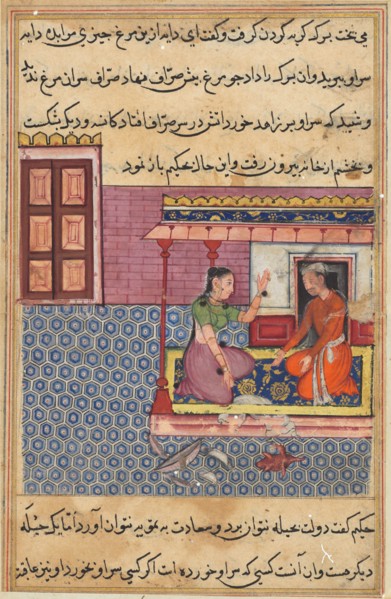 می‌پخت برکه کریه کردن کرفت و کفت ای دایه ازین مرغ چیزی مرا بده دایه
سر او ببرید و ان برکه را داد چو مرغ پیش صراف نهاد صراف سر ان مرغ ندید
و شنید که سر او بر زاهد خوردانش در سر صراف افتاد کاسه و دیک شکست
و بخشم از خانه بیرون رفت و این حال بحکیم باز نمود
حکیم کفت دولت بحیله نتوان برد و سعادت به نتوان آورد اما یک حیله
دیکر هست و ان آنست کسی که سر او خورده است اکر کسی سر او بخورد او نیز